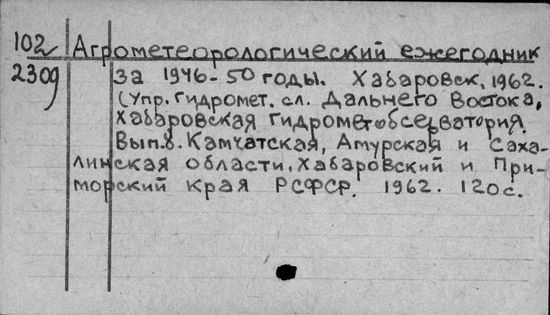 102 Агрометеорологический ежегодник
2309 за 1946-50 годы. Хабаровск, 1962.
(Упр. Гидромет. сл. Дальнего Востока,
Хабаровская Гидрометобсерватория.
Вып. 8. Камчатская, Амурская и Саха-
линская области, Хабаровский и При-
морский края РСФСР. 1962. 120 с.